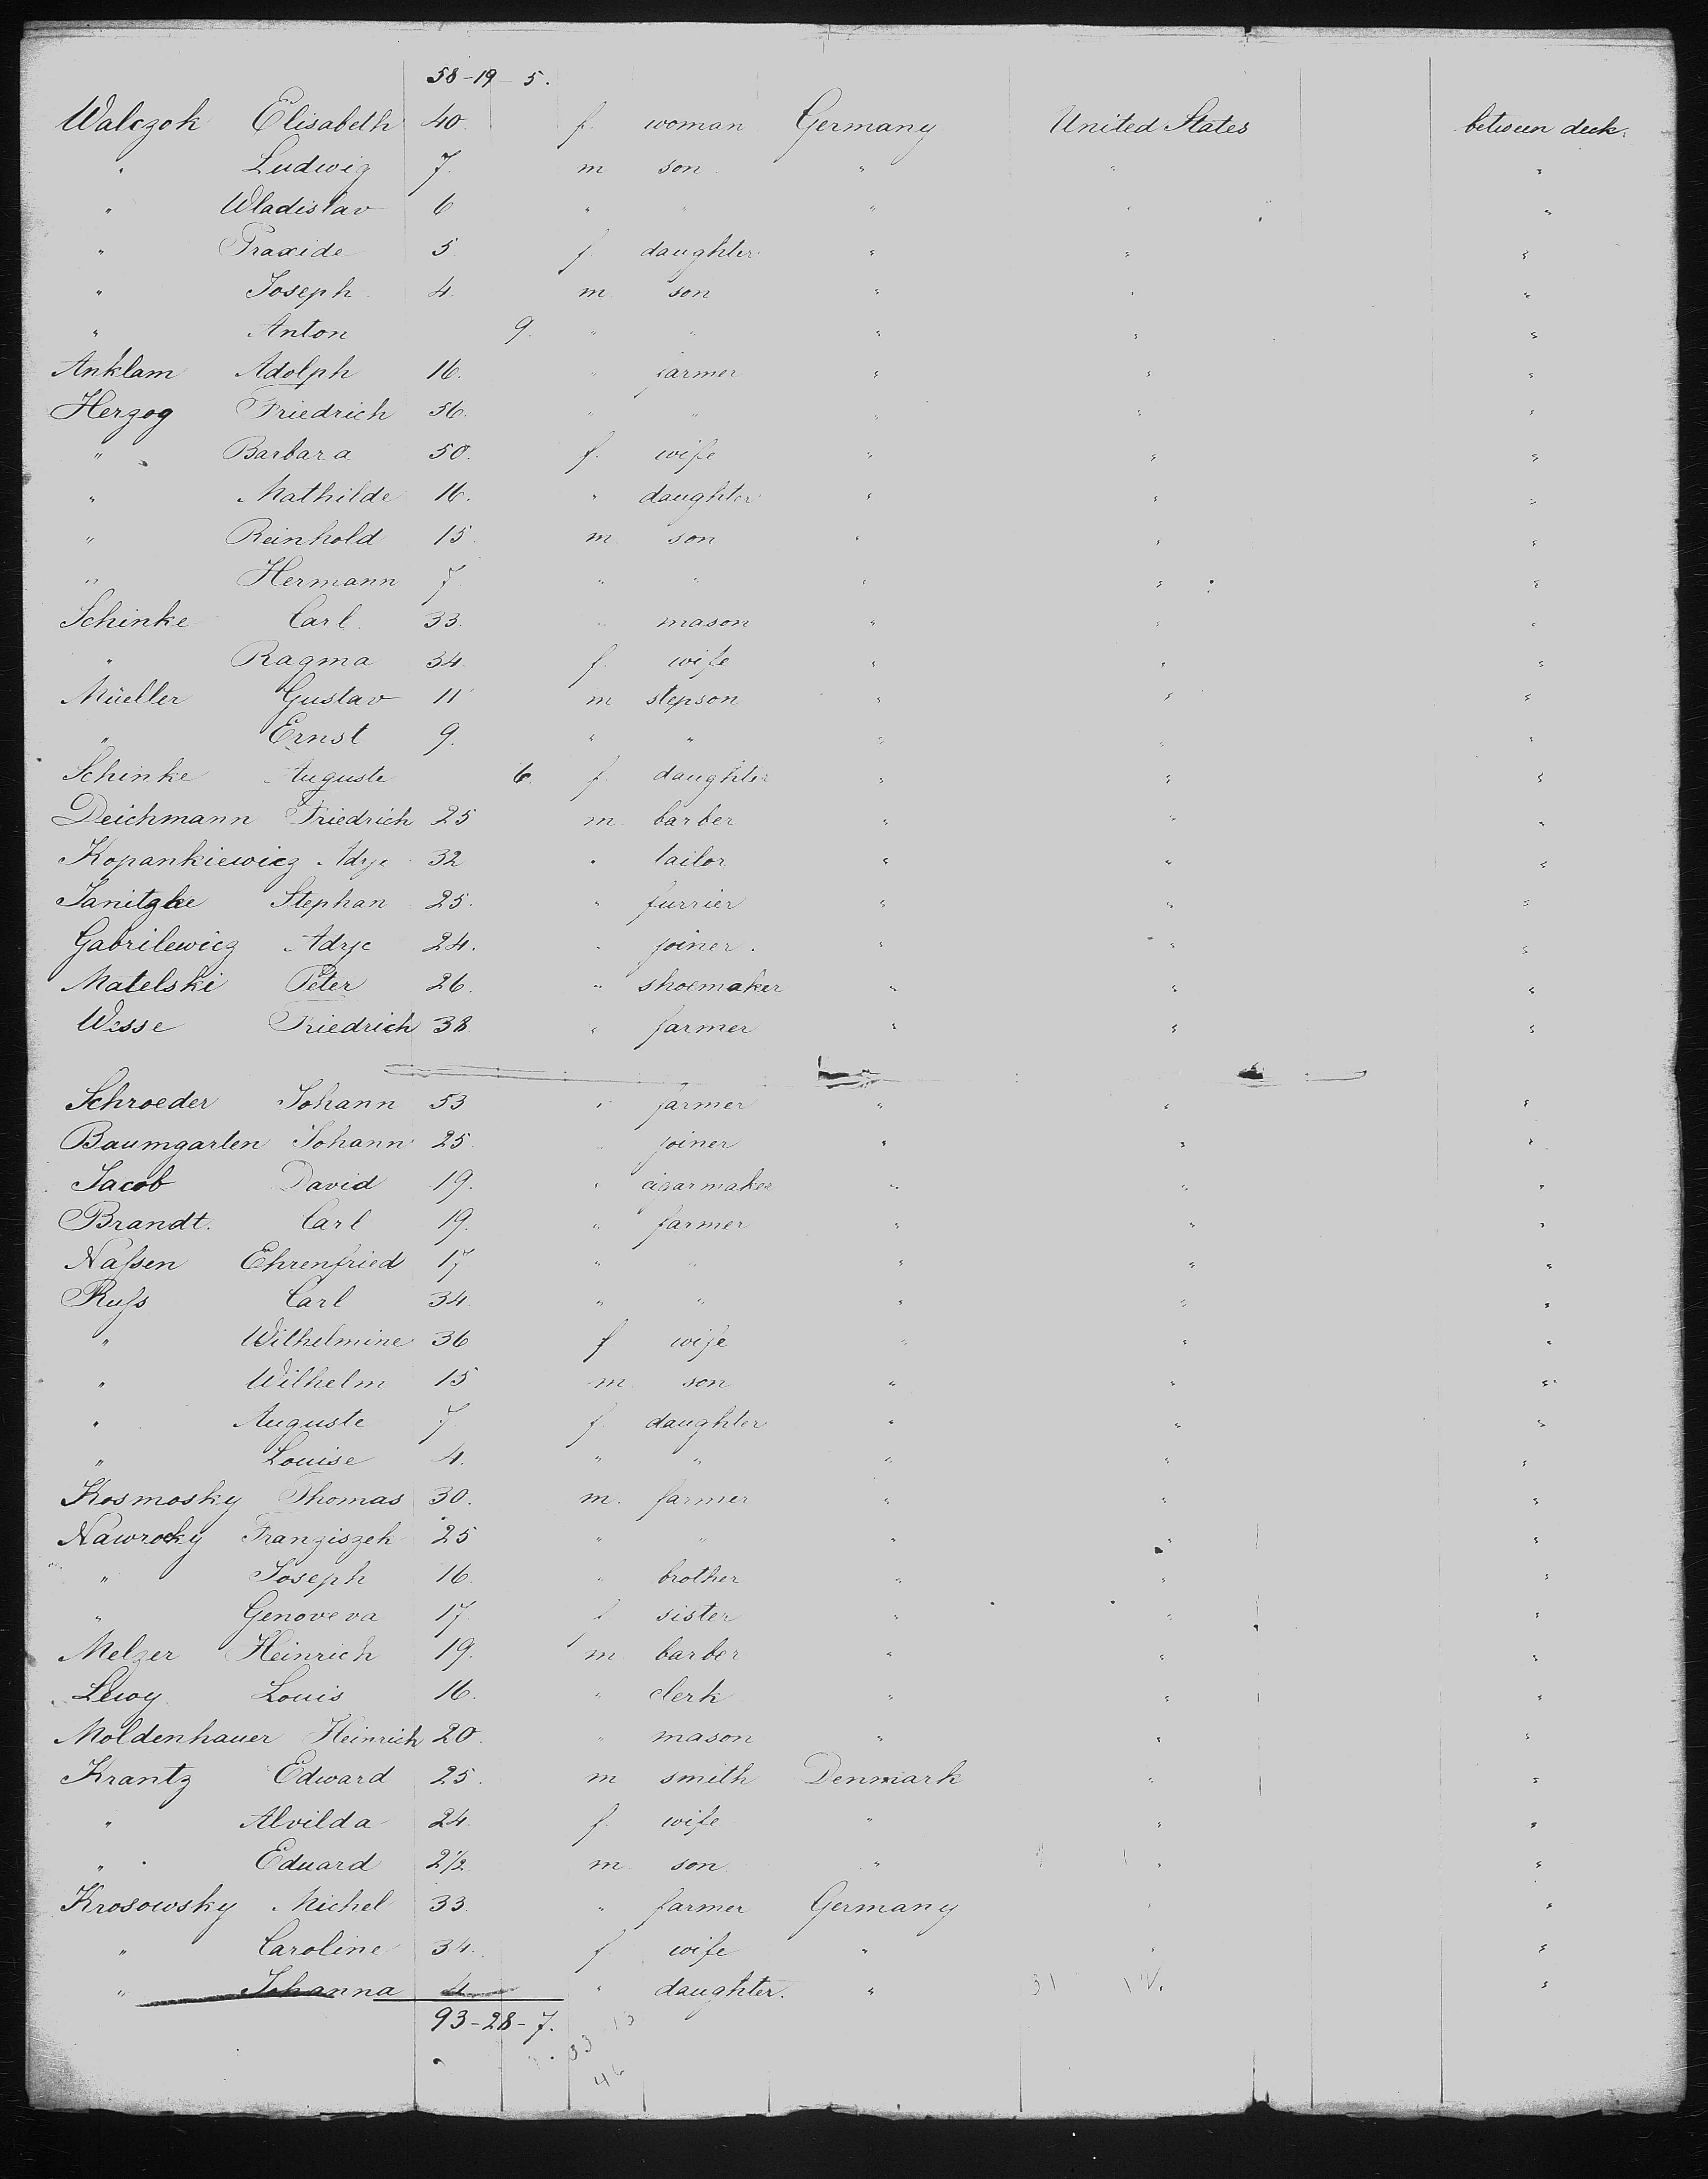 58-19 5.
Walczok Elisabeth 40 f. woman Germany United States between deck.
" Ludwig 7. m son " " "
" Wladislav 6 " " " " "
" Praxide 5 f. daughter " " "
" Joseph 4. m son " " "
" Anton 9. " " " " "
Anklam Adolph 16. " farmer " " "
Herzog Friedrich 56. " " " " "
" Barbara 50. f. wife " " "
" Mathilde 16. " daughter " " "
" Reinhold 15 m son " " "
" Hermann 7 " " " " "
Schinke Carl 33. " mason " " "
" Ragma 34. f. wife " " "
Müeller Gustav 11 m stepson " " "
" Ernst 9. " " " " "
Schinke Auguste 6 f. daughter " " "
Deichmann Friedrich 25 m. barber " " "
Kopankiewicz Adye 32 " tailor " " "
Janitzke Stephan 25. " furrier " " "
Gabrilewicz Adye 24. " joiner. " " "
Matelski Peter 26. " shoemaker " " "
Wesse Friedrich 38 " farmer " " "
Schroeder Johann 53 " farmer " " "
Baumgarten Johann 25. " joiner " " "
Jacob David 19. " cigarmaker " " "
Brandt. Carl 19. " farmer " " "
Naſsen Ehrenfried 17 " " " " "
Ruſs Carl 34. " " " " "
" Wilhelmine 36 f wife " " "
" Wilhelm 15 m son " " "
" Auguste 7 f. daughter " " "
" Louise 4. " " " " "
Kosmosky Thomas 30. m. farmer " " "
Nawrocky Franziszek 25 " " " " "
" Joseph 16 " brother " " "
" Genoveva 17. f sister " " "
Melzer Heinrich 19. m barber " " "
Lewy Louis 16. " clerk " " "
Moldenhauer Heinrich 20. " mason " " "
Krantz Edward 25. m smith Denmark " "
" Alvilda 24. f. wife " " "
" Eduard 2½ m son " " "
Krosowsky Michel 33. " farmer Germany " "
" Caroline 34. f wife " " "
" Johanna 4 " daughter. " "
93-28-7.
33
46